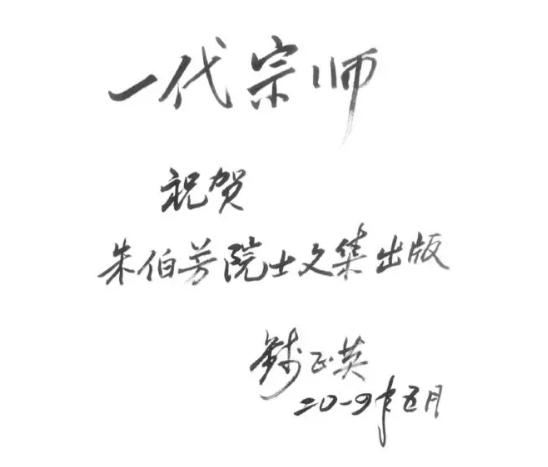 一代宗师
祝贺
朱伯芳院士文集出版
钱正英
二〇一九年五月